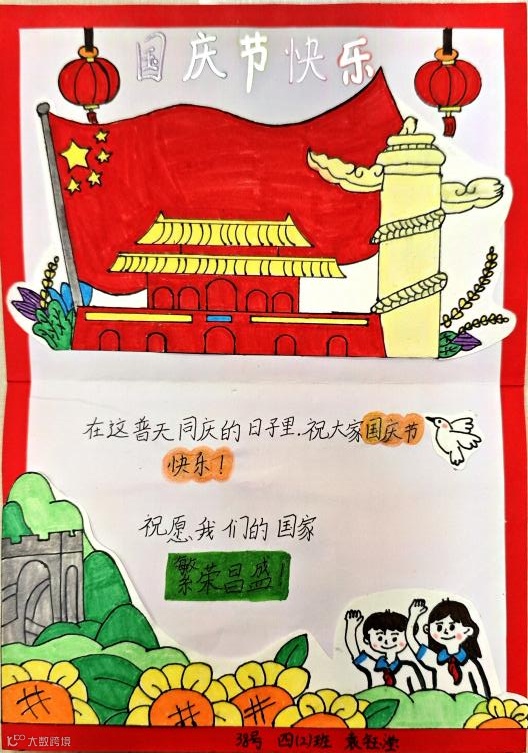 国庆节快乐
在这普天同庆的日子里.祝大家国庆节
快乐！
祝愿我们的国家
繁荣昌盛！
38号 四(2)班 袁
大数跨境